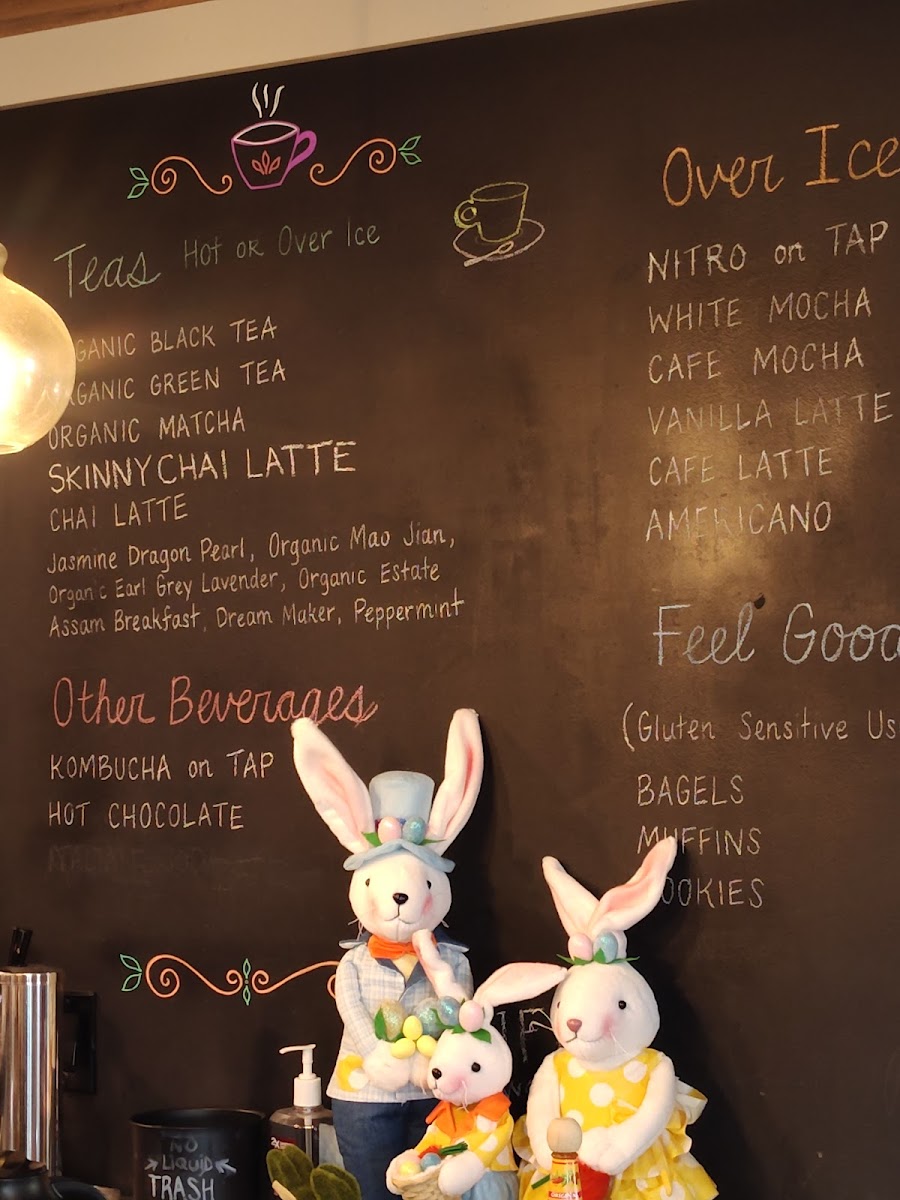 Teas Hot or Over Ice
ORGANIC BLACK TEA
ORGANIC GREEN TEA
ORGANIC MATCHA
SKINNY CHAI LATTE
CHAI LATTE
Jasmine Dragon Pearl, Organic Mao Jian,
Organic Earl Grey Lavender, Organic Estate
Assam Breakfast, Dream Maker, Peppermint
Other Beverages
KOMBUCHA on TAP
HOT CHOCOLATE
Over Ice
NITRO on TAP
WHITE MOCHA
CAFE MOCHA
VANILLA LATTE
CAFE LATTE
AMERICANO
Feel Good
(Gluten Sensitive Us
BAGELS
MUFFINS
COOKIES
NO
LIQUID
TRASH